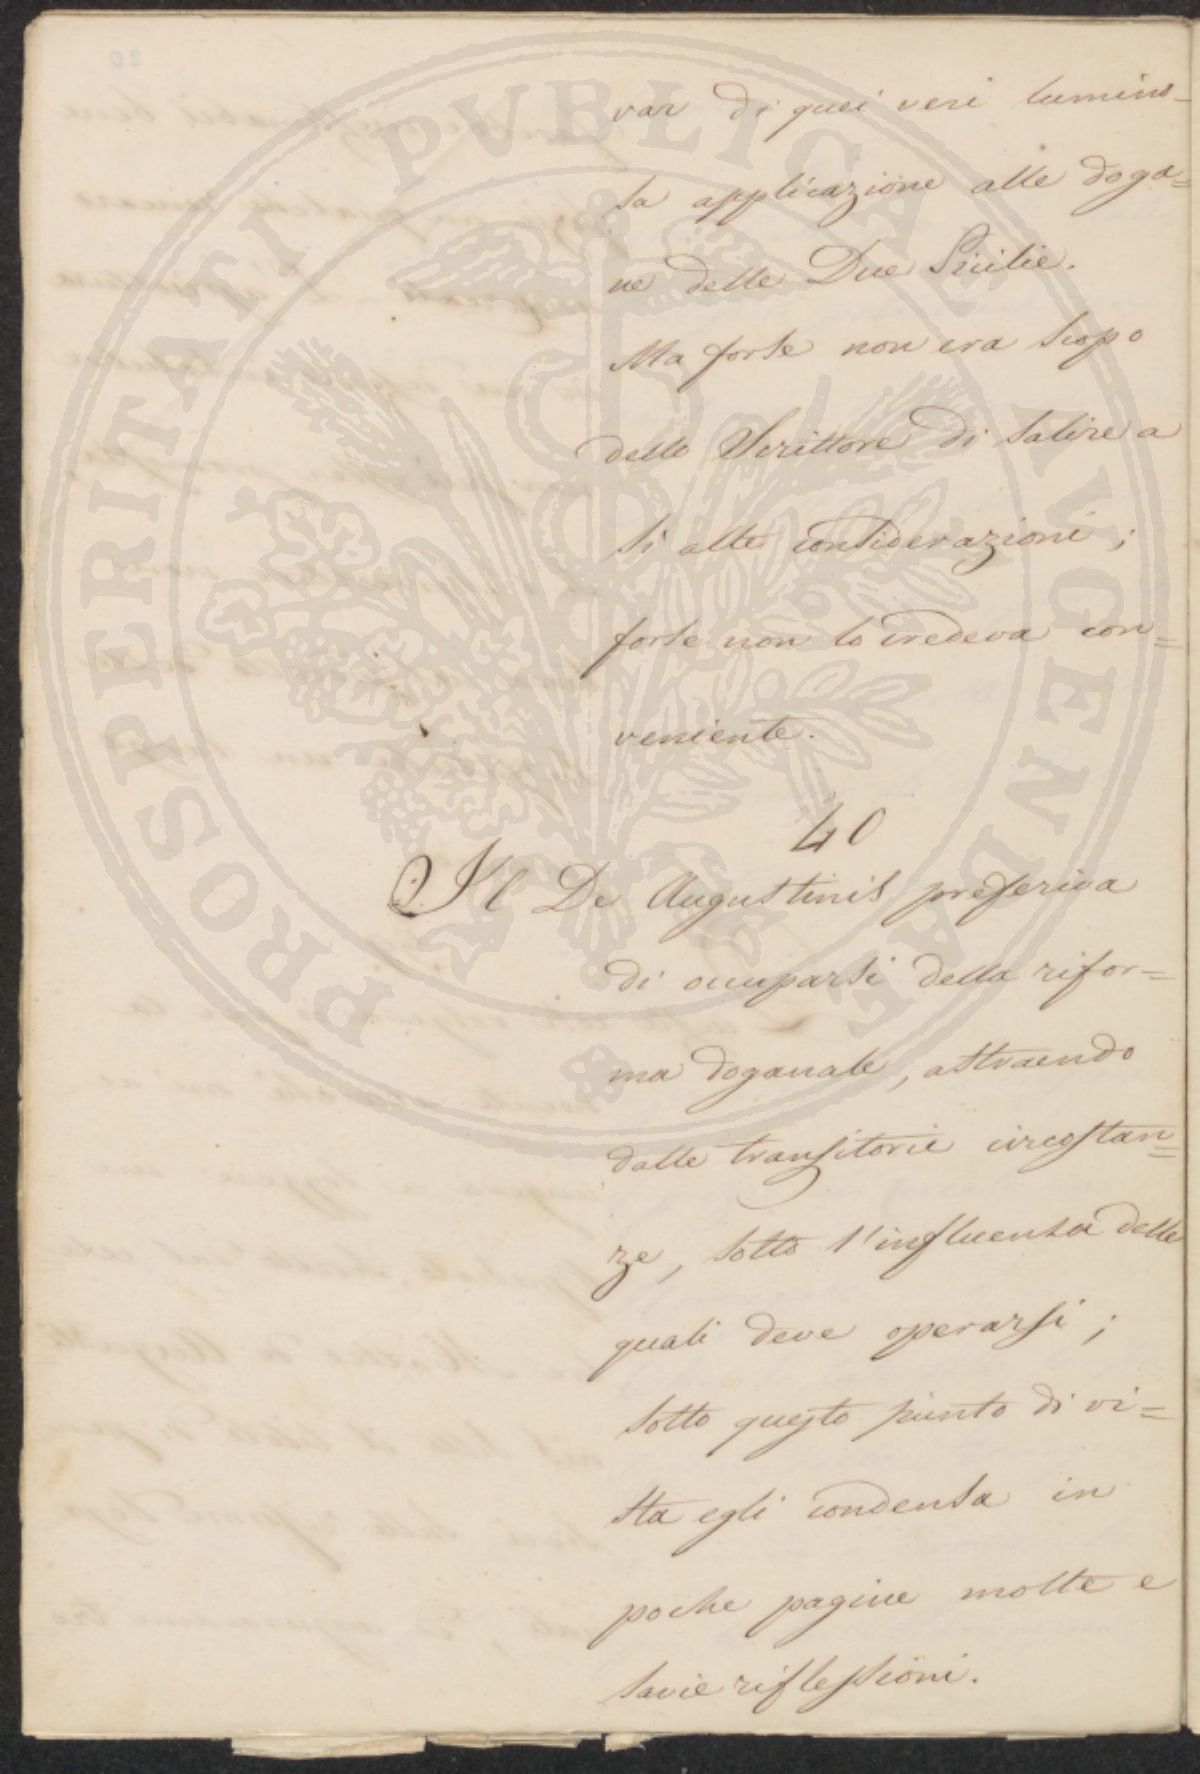 var di quei veri lumino-
sa applicazione alle doga=
ne delle Due Sicilie.
Ma forse non era scopo
dello Scrittore di salire a
sì alte considerazioni;
forse non lo credeva con=
veniente.
40
Il De Augustinis preferiva
di occuparsi della rifor=
ma doganale, astraendo
dalle transitorie circostan=
ze, sotto l'influensa delle
quali deve operarsi;
sotto questo punto di vi=
sta egli condensa in
poche pagine molte e
savie riflessioni.
PROSPERITATI PVBLICAE AVGENDAE